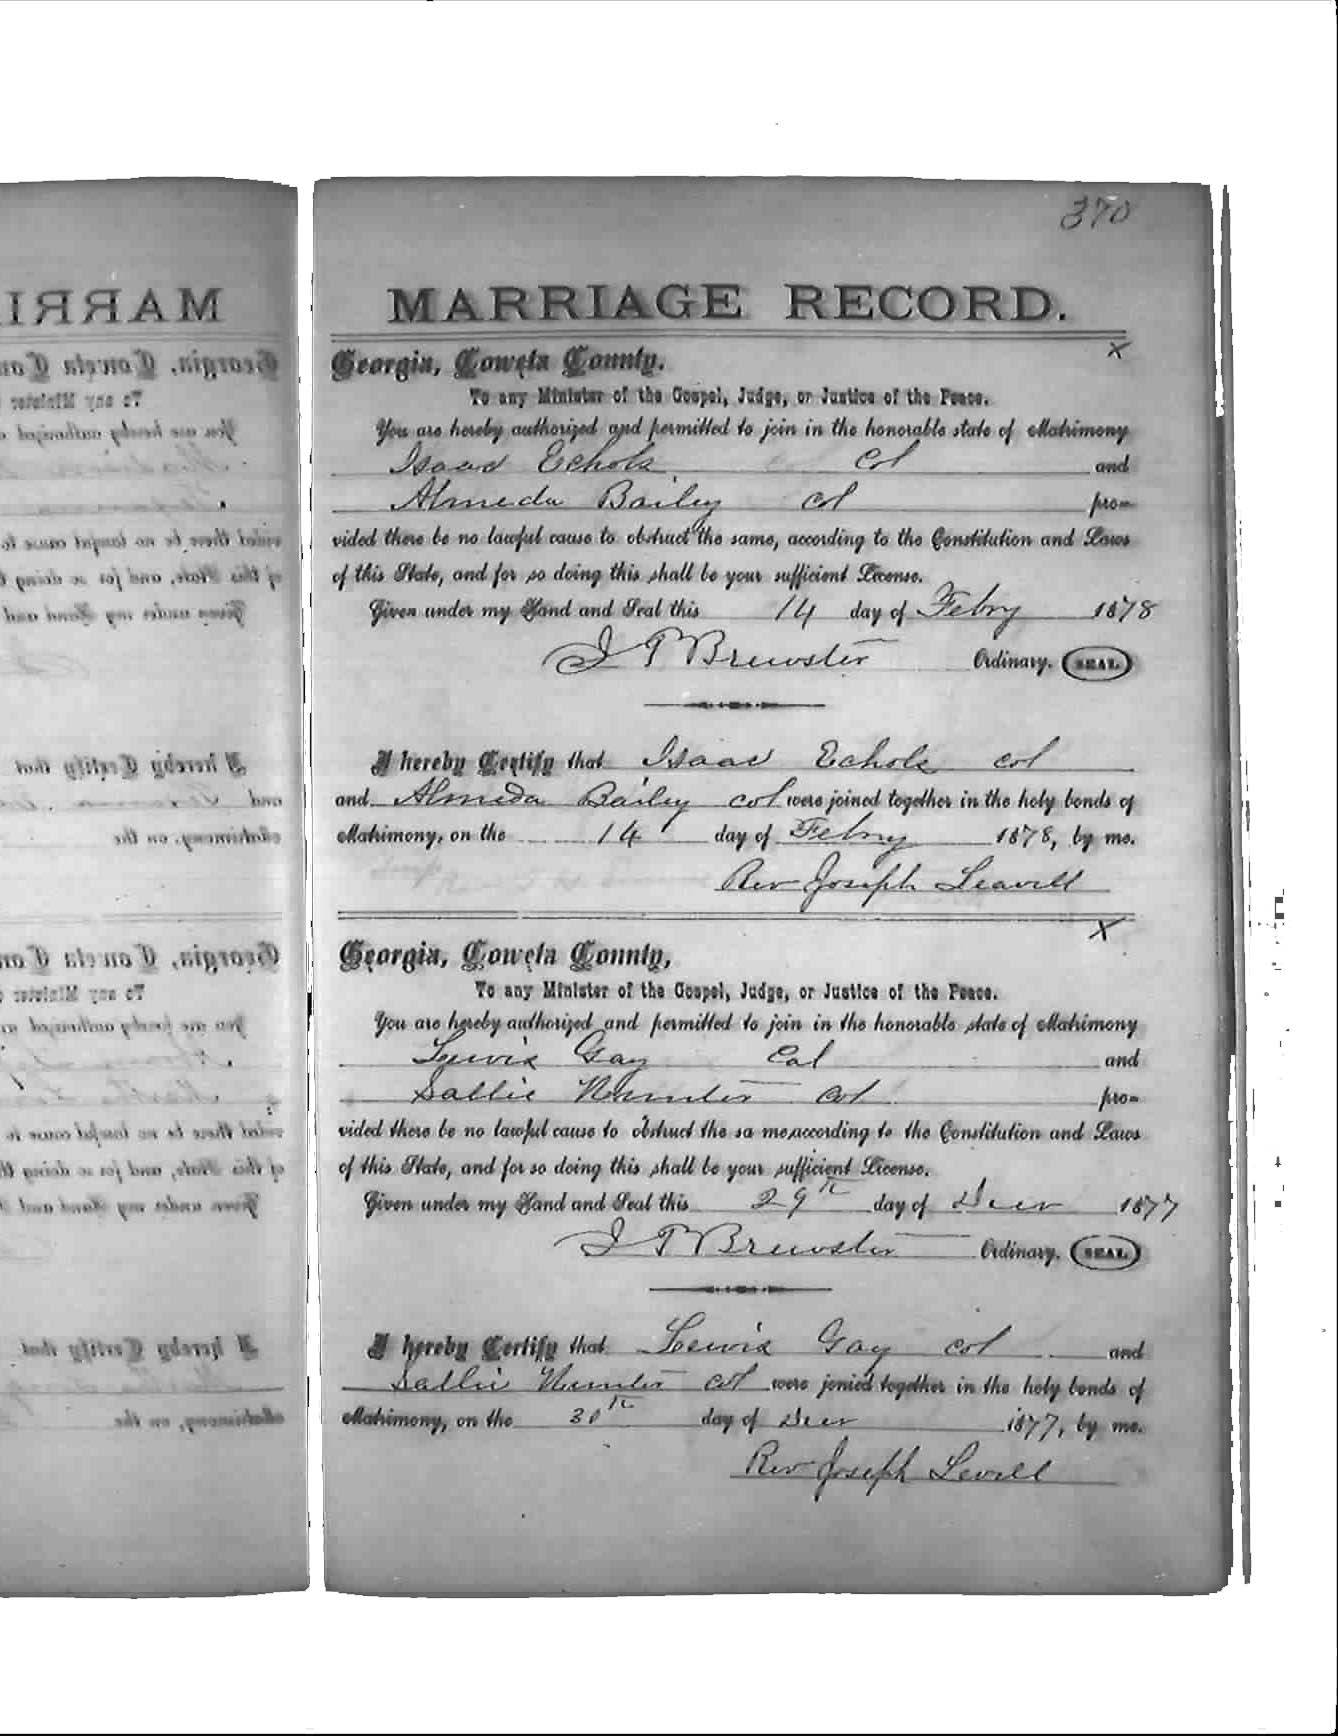 370
MARRIAGE RECORD.
Georgia, Coweta County. X
To any Minister of the Gospel, Judge, or Justice of the Peace.
You are hereby authorized and permitted to join in the honorable state of Matrimony
Isaac Echols col and
Almeda Bailey col pro-
vided there be no lawful cause to obstruct the same, according to the Constitution and Laws
of this State, and for so doing this shall be your sufficient License.
Given under my Hand and Seal this 14 day of Febry 1878
J P Brewster Ordinary. SEAL.
I hereby Certify that Isaac Echols col
and Almeda Bailey col were joined together in the holy bonds of
Matrimony, on the 14 day of Febry 1878, by me.
Rev Joseph Leavell
X
Georgia, Coweta County,
To any Minister of the Gospel, Judge, or Justice of the Peace.
You are hereby authorized and permitted to join in the honorable state of Matrimony
Lewis Gay Col and
Sallie col pro-
vided there be no lawful cause to obstruct the sa me,according to the Constitution and Laws
of this State, and for so doing this shall be your sufficient License.
Given under my Hand and Seal this 29th day of Decr 1877
J P Brewster Ordinary. SEAL.
I hereby Certify that Lewis Gay col and
Sallie col were jonied together in the holy bonds of
Matrimony, on the 30th day of Decr 1877, by me.
Rev Joseph Levell